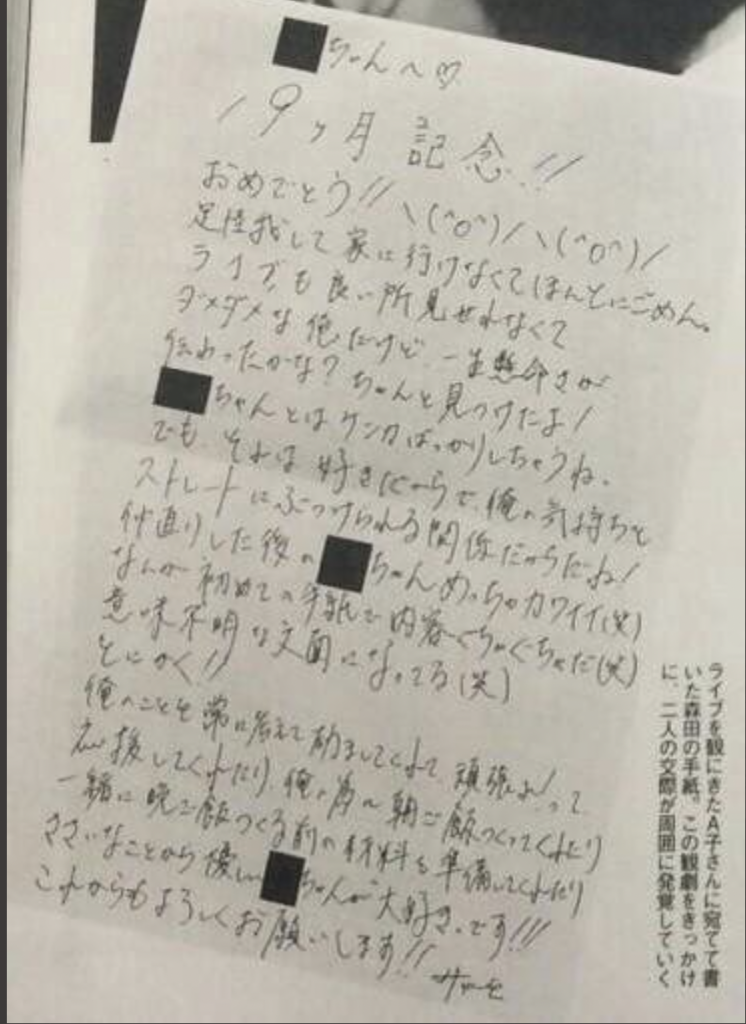 ちゃんへ♡
19ヶ月記念!!
おめでとう!! \(^o^)/\(^o^)/
足怪我して家に行けなくてほんとにごめん。
ライブも良い所見せれなくて
ダメダメな俺だけど、一生懸命さが
伝わったかな?ちゃんと見つけたよ!
ちゃんとはケンカばっかりしちゃうね。
でも、それは好きだからで、俺の気持ちを
ストレートにぶつけられる関係だからだね!
仲直りした後の ちゃんめっちゃカワイイ(笑)
なんか初めての手紙で内容ぐちゃぐちゃだ(笑)
意味不明な文面になってる(笑)
とにかく!!
俺のことを常に考えて してくれて、頑張れ!って
応援してくれたり、俺の為に朝ご飯つくってくれたり
一緒に晩ご飯つくる前の材料も準備してくれたり
ササいなことから優しい ちゃんが大好きです!!!
これからもよろしくお願いします!!
ライブを観にきたA子さんに宛てて書
いた森田の手紙。この観劇をきっかけ
に、二人の交際が周囲に発覚していく